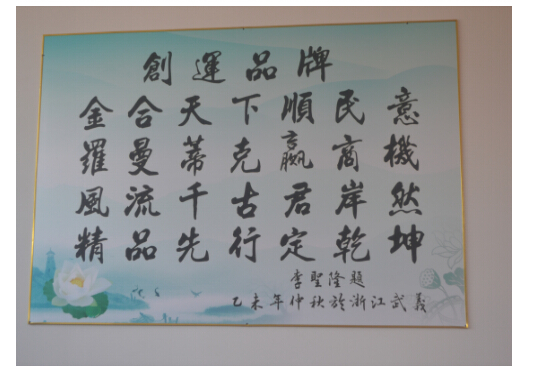 創運品牌
金合天下順民意
羅曼蒂克贏商機
風流千古君岸然
精品先行定乾坤
李聖隆題
乙未年仲秋於浙江武義